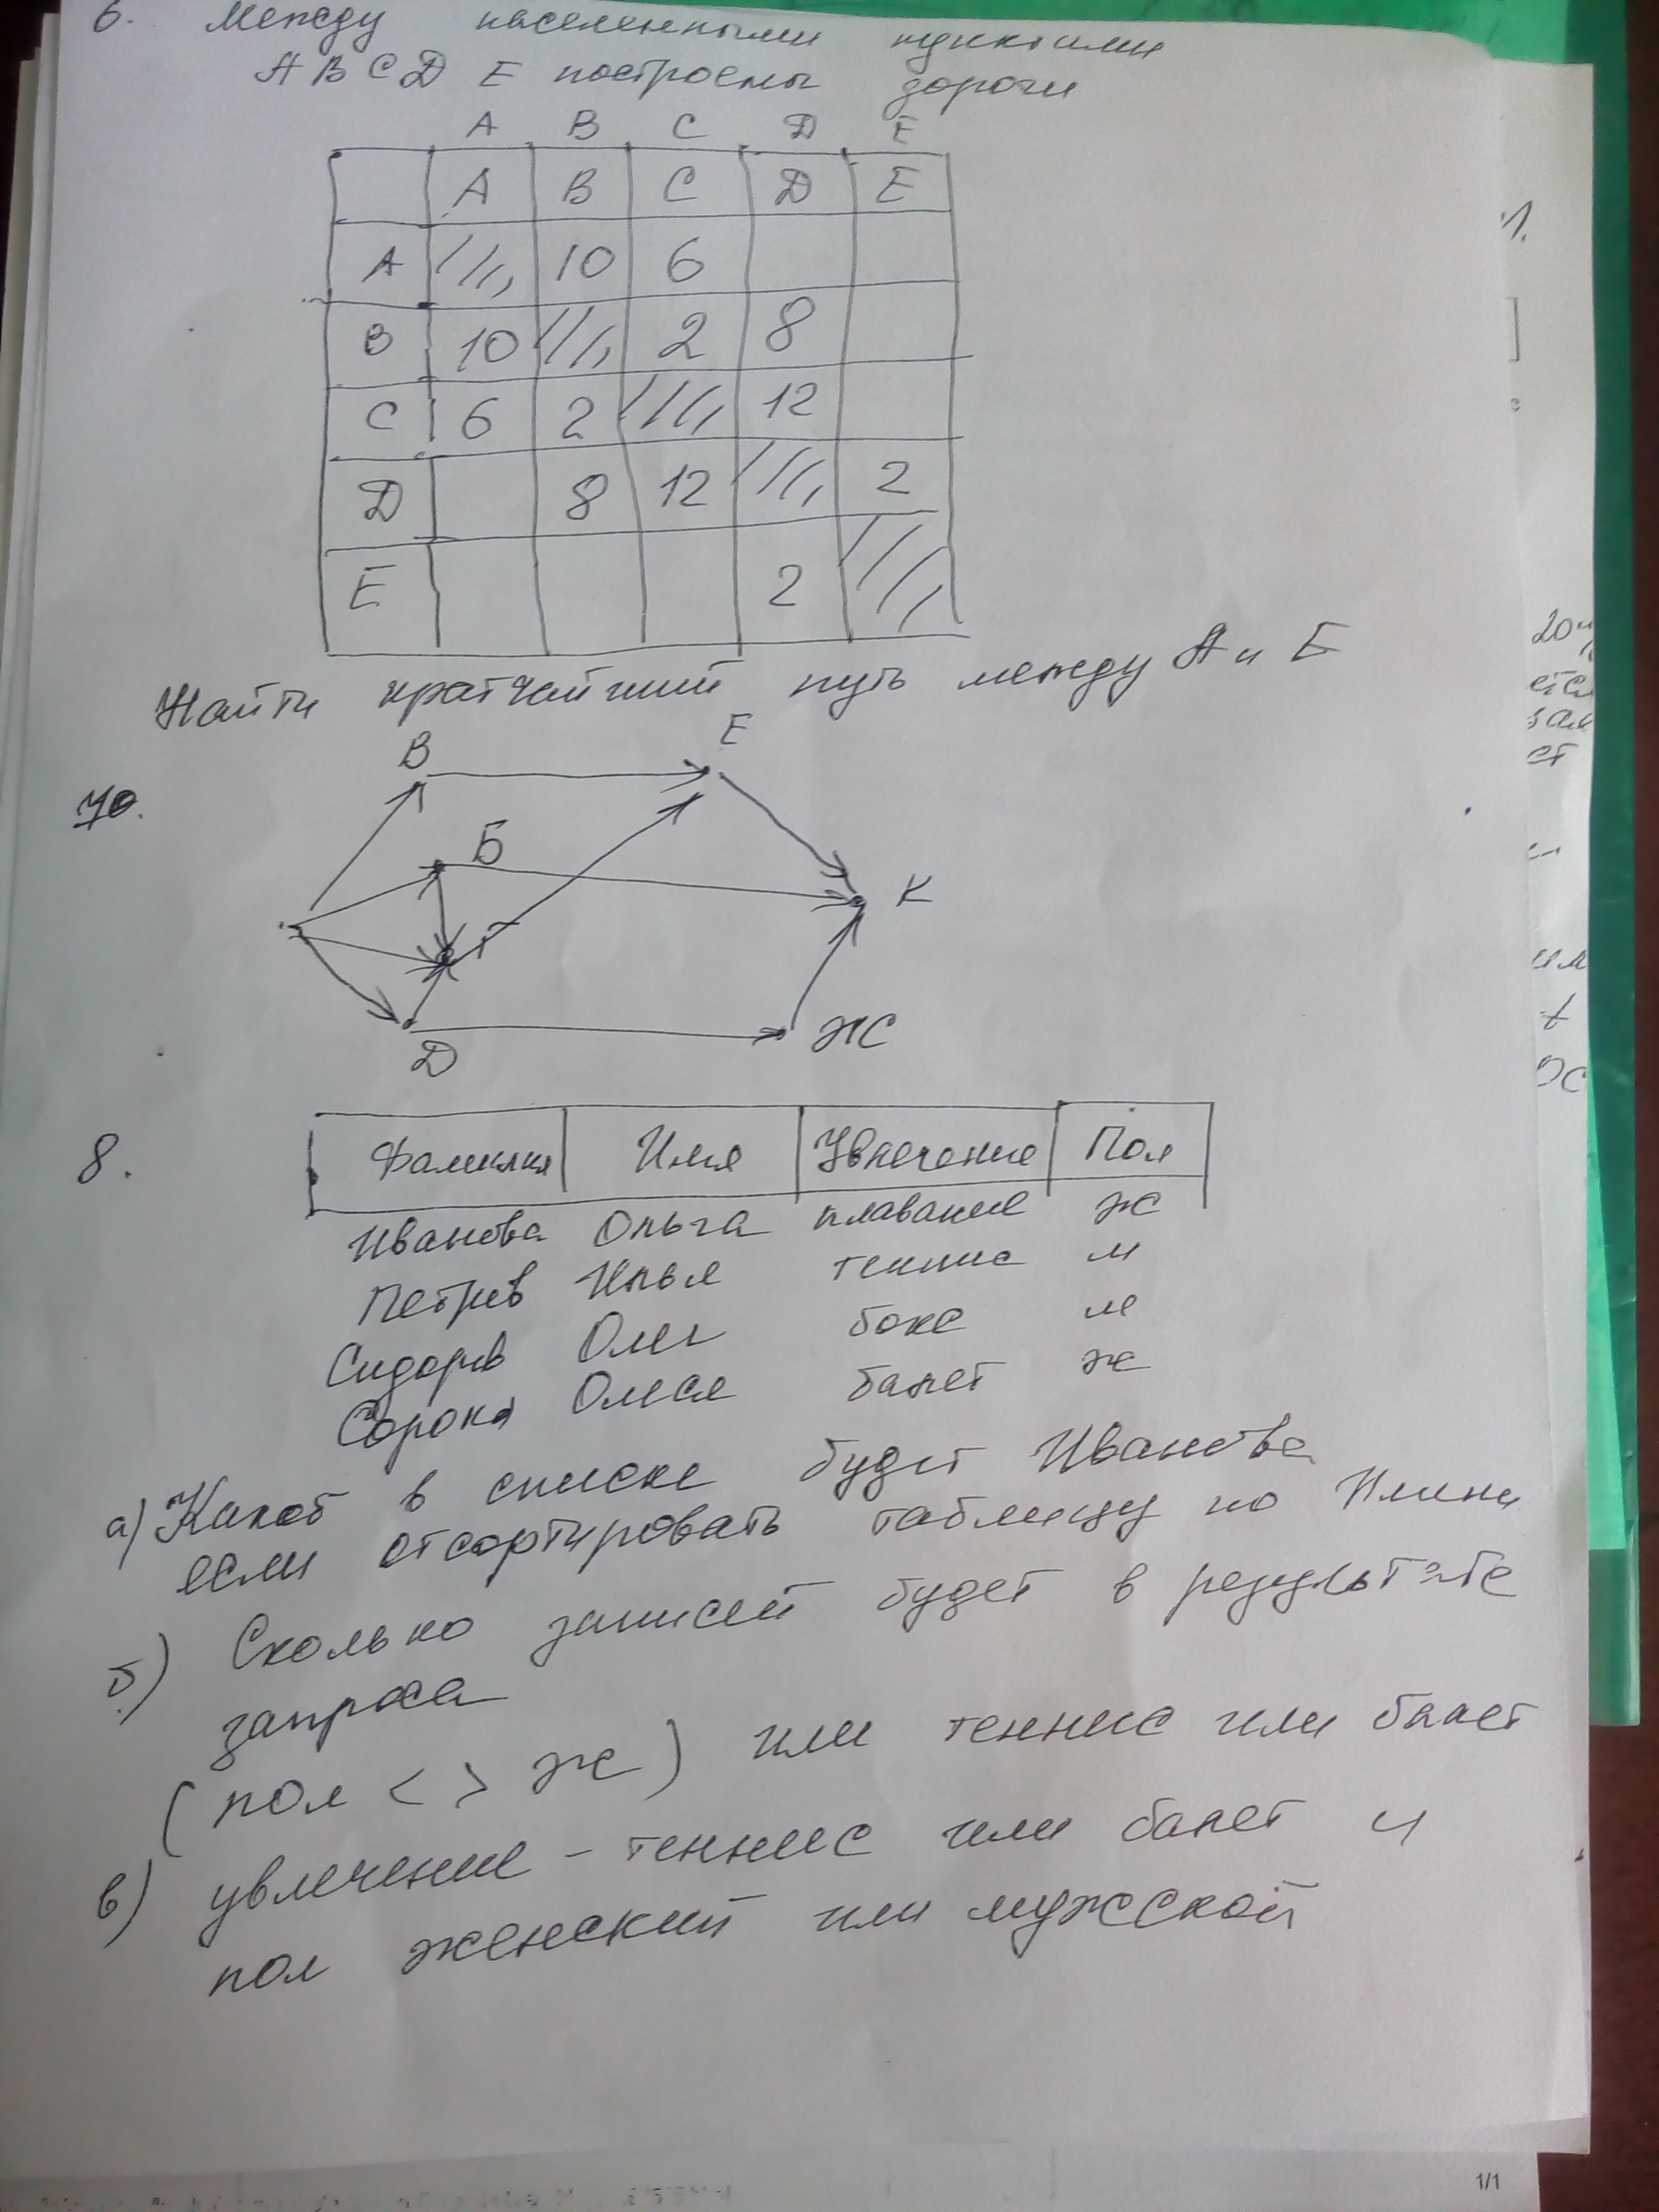 6. Между населенными пунктами
A B C D E построены дороги
A B C D E
A B C D E
A 10 6
B 10 2 8
C 6 2 12
D 8 12 2
E 2
Найти кратчайший путь между A и E
В Е
70.
Б
К
Г
Ж
Д
8.
Фамилия Имя Увлечение Пол
Иванова Ольга плавание ж
Петров Илья теннис м
Сидоров Олег бокс м
Сорока Олеся балет ж
а) Какой в списке будет Иванова
если отсортировать таблицу по Имени
б) Сколько записей будет в результате
запроса
(пол < > ж) или теннис или балет
в) увлечение - теннис или балет и
пол женский или мужской
20
ет
1/1